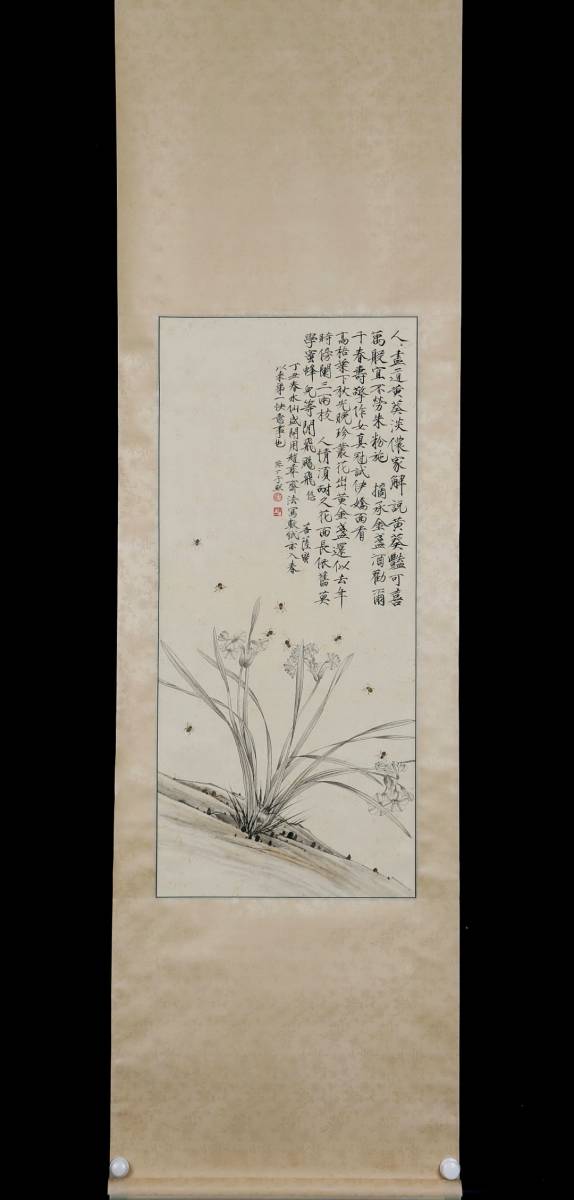 人〻盡道黃葵淡儂家解說黃葵豔可喜
萬般宜不勞朱粉施 摘承金盞酒勸爾
千春壽擎作女真冠試伊嬌面看
高梧葉下秋光晚珍叢花出黃金盞還似去年
時傍闌三兩枝 人情須耐久花面長依舊莫
學蜜蜂兒等閒飛颺飛 悠 菩薩蠻
丁丑春水仙盛開用趙彝齋法寫敗紙亦入春
以來第一快意事也